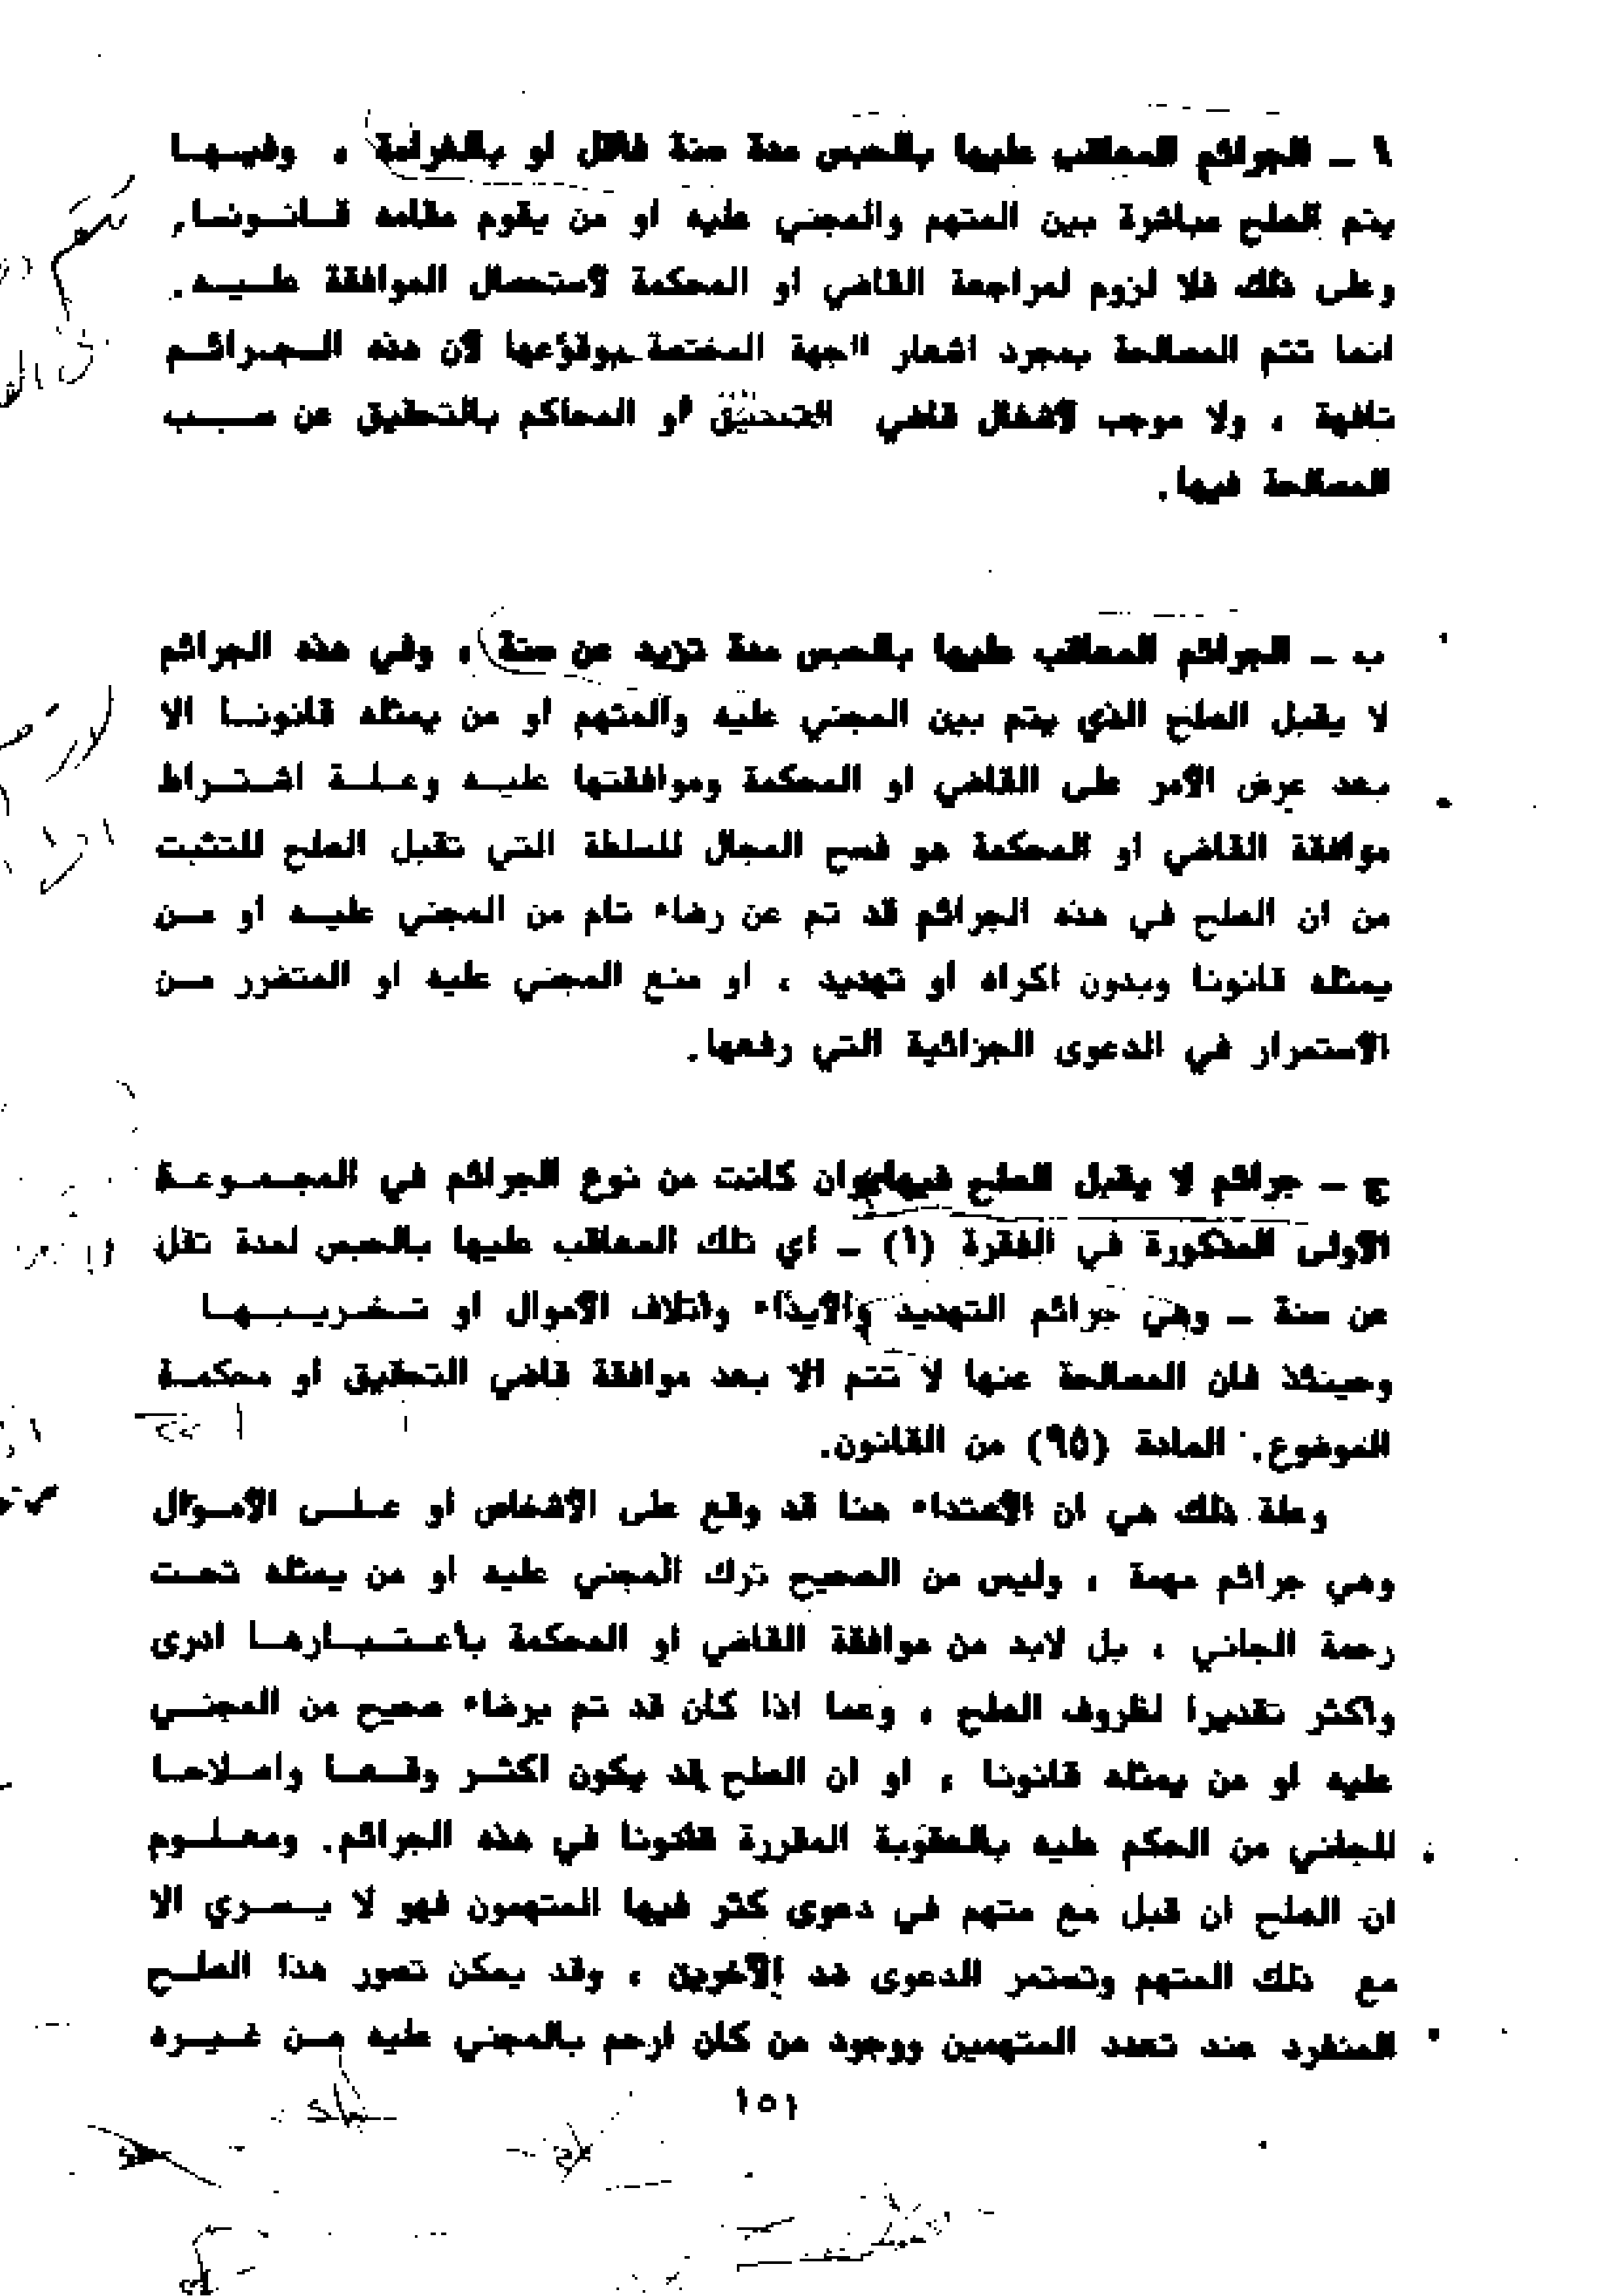 أ ـ الجرائم المعاقب عليها بالحبس مدة سنة فاقل او بالغرامة ، وفيـهـا
يتم الصلح مباشرة بين المتهم والمجني عليه او من يقوم مقامه قـانـونـا,
وعلى ذلك فلا لزوم لمراجعة القاضي او المحكمة لأستحصال الموافقة علـيـه.
انما تتم المصالحة بمجرد اشعار الجهة المختصة بوقوعها لأن هذه الـجـرائـم
تافهة ، ولا موجب لأشغال قاضي التحقيق او المحاكم بالتحقيق عن سـبـب
المصالحة فيها.
ب ـ الجرائم المعاقب عليها بالحبس مدة تزيد عن سنة ، وفي هذه الجرائم
لا يقبل الصلح الذي يتم بين المجني عليه والمتهم او من يمثله قانونـا الا
بعد عرض الأمر على القاضي او المحكمة وموافقتها عليـه وعـلـة اشـتـراط
موافقة القاضي او المحكمة هو فسح المجال للسلطة التي تقبل الصلح للتثبت
من ان الصلح في هذه الجرائم قد تم عن رضاء تام من المجني عليـه او مـن
يمثله قانونا وبدون اكراه او تهديد ، او منع المجني عليه او المتضرر مـن
الأستمرار في الدعوى الجزائية التي رفعها.
ج ـ جرائم لا يقبل الصلح فيها وان كانت من نوع الجرائم في المجـمـوعـة
الأولى المذكورة في الفقرة (أ) ـ اي تلك المعاقب عليها بالحبس لمدة تقل
عن سنة ـ وهي جرائم التهديد والأيذاء واتلاف الأموال او تـخـريـبـهـا
وحينئذ فان المصالحة عنها لا تتم الا بعد موافقة قاضي التحقيق او محكمـة
الموضوع. المادة (٩٥) من القانون.
وعلة ذلك هي ان الأعتداء هنا قد وقع على الأشخاص او عـلـى الأمـوال
وهي جرائم مهمة ، وليس من الصحيح ترك المجني عليه او من يمثله تحـت
رحمة الجاني ، بل لابد من موافقة القاضي او المحكمة باعـتـبـارهـا ادرى
واكثر تقديرا لظروف الصلح ، وعما اذا كان قد تم برضاء صحيح من المجنـي
عليه او من يمثله قانونا ، او ان الصلح قد يكون اكثـر وقـعـا واصـلاحـا
للجاني من الحكم عليه بالعقوبة المقررة قانونا في هذه الجرائم. ومعـلـوم
ان الصلح ان قبل مع متهم في دعوى كثر فيها المتهمون فهو لا يـسـري الا
مع ذلك المتهم وتستمر الدعوى ضد الأخرين ، وقد يمكن تصور هذا الصلـح
المنفرد عند تعدد المتهمين ووجود من كان ارحم بالمجني عليه مـن غـيـره
١٥١